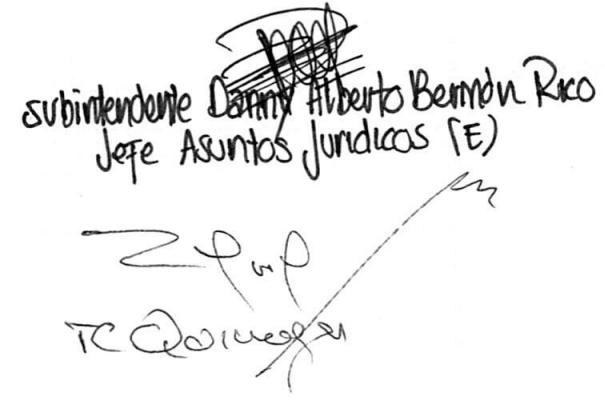 subintendente Danny Alberto Bermón Rico
Jefe Asuntos Jurídicos (E)
TC Quiroga